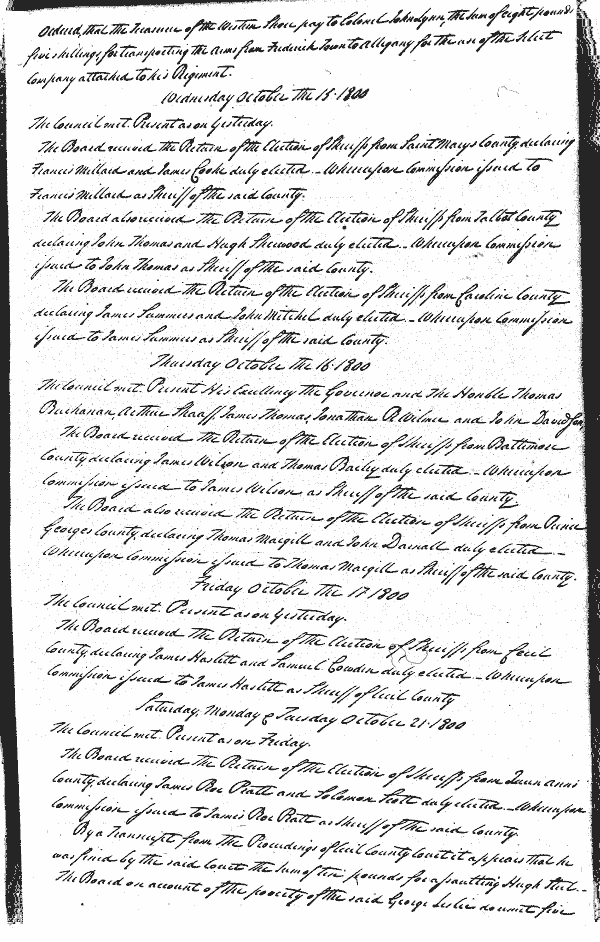 Ordered, that the Treasurer of the Western Shore pay to Colonel John Lynn, the sum of eight pounds
five shillings, for transporting the Arms from Frederick Town to Allegany for the use of the Select
Company attached to his Regiment.
Wednesday October the 15. 1800
The Council met. Present as on Yesterday.
The Board received the Return of the Election of Sheriffs from Saint Marys County, declaring
Francis Millard and James Cooke duly elected.. Whereupon Commission issued to
Francis Millard as Sheriff of the said County.
The Board also received the Return of the Election of Sheriffs from Talbot County
declaring John Thomas and Hugh Sherwood duly elected.. Whereupon Commission
issued to John Thomas as Sheriff of the said County.
The Board received the Return of the Election of Sheriffs from Caroline County
declaring James Summers and John Mitchel duly elected.. Whereupon Commission
issued to James Summers as Sheriff of the said County.
Thursday October the 16. 1800
The Council met. Present His Excellency the Governor and The Honble Thomas
Buchanan, Arthur Shaaff James Thomas, Jonathan R Wilmer and John Davidson,
The Board received the Return of the Election of Sheriffs from Baltimore
County, declaring James Wilson and Thomas Bailey duly elected.. Whereupon
Commission issued to James Wilson as Sheriff of the said County.
The Board also received the Return of the Election of Sheriffs from Prince
Georges County, declaring Thomas Macgill and John Darnall duly elected..
Whereupon Commission issued to Thomas Macgill as Sheriff of the said County.
Friday October the 17. 1800
The Council met. Present as on Yesterday.
The Board received the Return of the Election of Sheriffs from Cecil
County, declaring James Haslett and Samuel Cowden duly elected.. Whereupon
Commission issued to James Haslett as Sheriff of Cecil County
Saturday, Monday & Tuesday October 21. 1800
The Council met. Present as on Friday.
The Board received the Return of the Election of Sheriffs from Queen anns
County, declaring James Roe Pratt and Solomon Scott duly elected.. Whereupon
Commission issued to James Roe Pratt as Sheriff of the said County.
By a Transcript from the Proceedings of Cecil County Court it appears that he
was fined by the said Court the sum of ten pounds for assaulting Hugh
The Board on account of the poverty of the said George Leslie do remit five